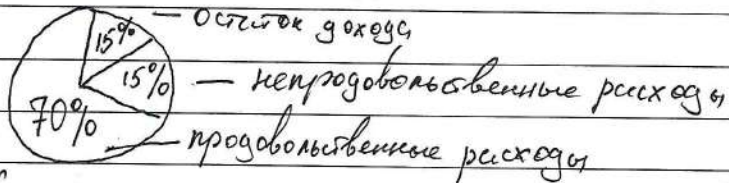 15% — остаток дохода
15% — непродовольственные расходы
70% — продовольственные расходы